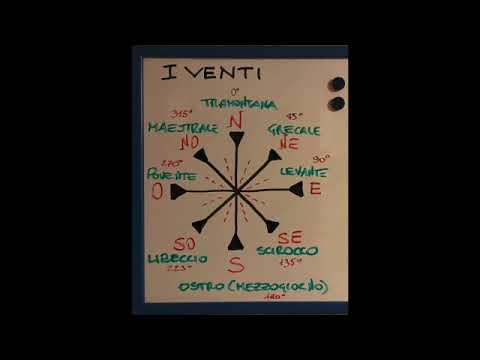 I VENTI
0°
TRAMONTANA
N
315°
MAESTRALE
NO
45°
GRECALE
NE
270°
PONENTE
O
90°
LEVANTE
E
SO
LIBECCIO
225°
S
SE
SCIROCCO
135°
OSTRO (MEZZOGIORNO)
180°